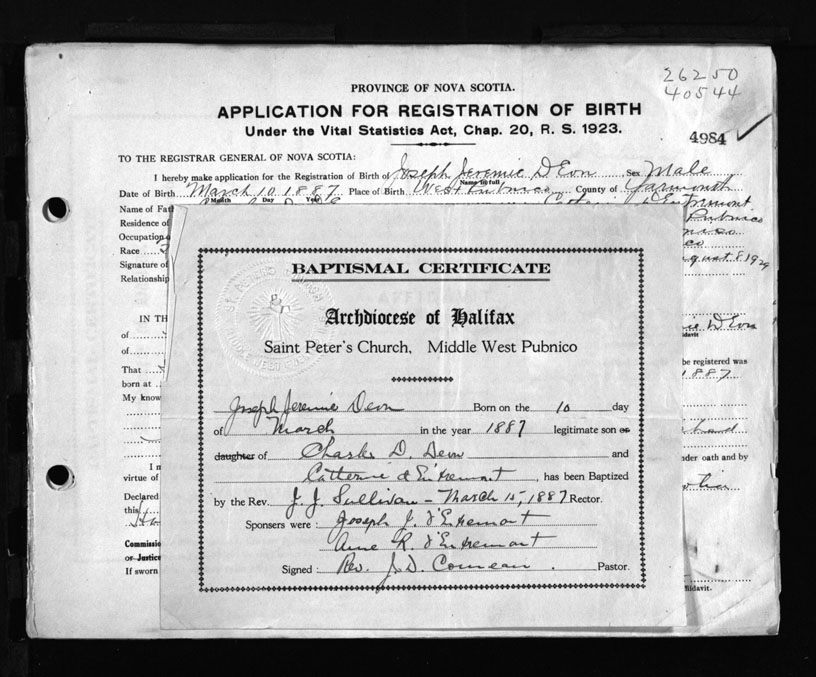 26250
40544
PROVINCE OF NOVA SCOTIA.
APPLICATION FOR REGISTRATION OF BIRTH
Under the Vital Statistics Act, Chap. 20, R. S. 1923.
4984
TO THE REGISTRAR GENERAL OF NOVA SCOTIA:
I hereby make application for the Registration of Birth of Joseph Jeremie DEon Sex Male
Name in full
Date of Birth March 10 1887 Place of Birth West Pubnico County of Yarmouth
Month Day Year
Name of Fat d'Entremont
Residence of Pubnico
Occupation
Race co
Signature of August 8 1929
Relationship
BAPTISMAL CERTIFICATE
Archdiocese of Halifax
Saint Peter's Church, Middle West Pubnico
Joseph Jeremie Deon Born on the 10 day
of March in the year 1887 legitimate son or
daughter of Charles D. Deon and
Catterine d'Entremont, has been Baptized
by the Rev. J. J. Sullivan - March 15, 1887 Rector.
Sponsers were: Joseph J. d'Entremont
Anne R. d'Entremont
Signed: Rev. J. D. Comeau. Pastor.
IN TH
of DEon
of
That be registered was
born at 1887
My know
I m der oath and by
virtue of
Declared
this
Commissio
or Justice
If sworn